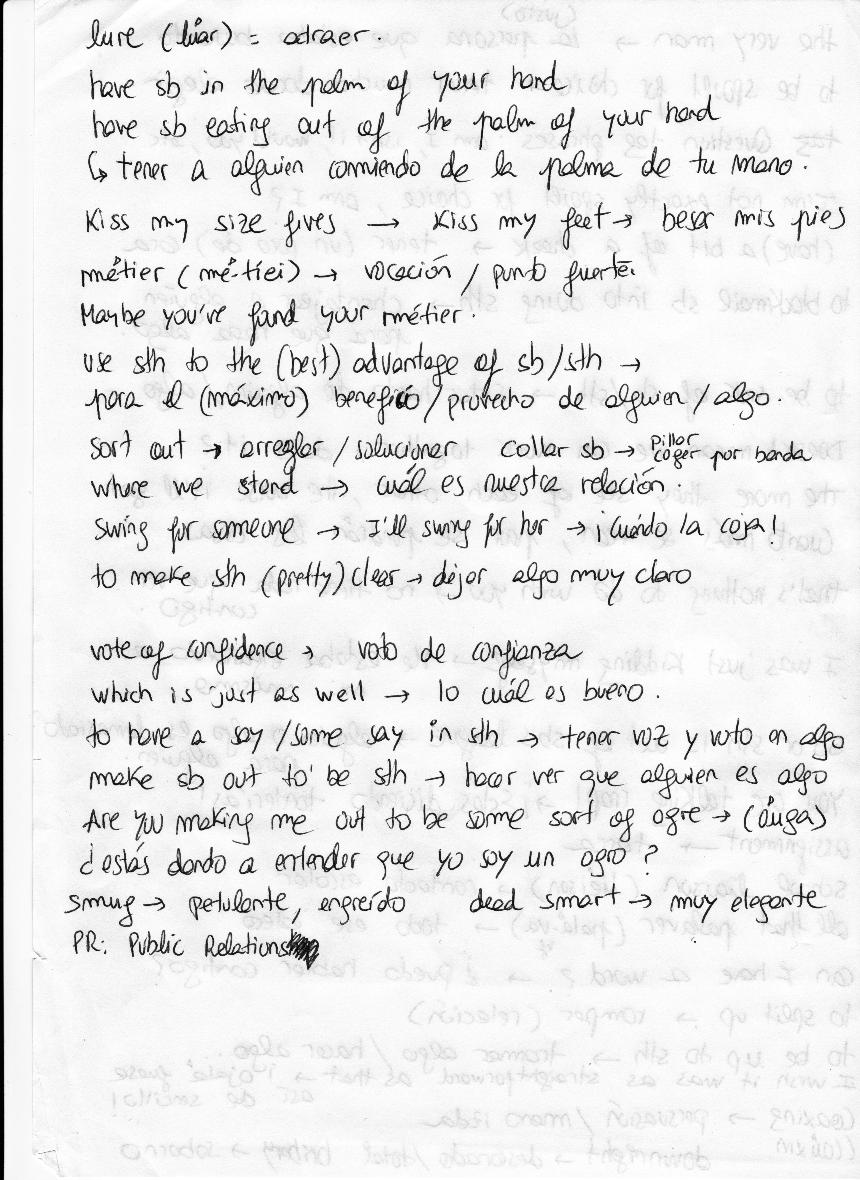 lure (lúar) = adraer.
have sb in the palm of your hand
have sb eating out of the palm of your hand
↳ tener a alguien comiendo de la palma de tu mano.
Kiss my size fives → Kiss my feet → besar mis pies
métier (mé-tiei) → vocación / punto fuerte.
Maybe you've fand your métier.
use sth to the (best) advantage of sb/sth →
para el (máximo) beneficio/provecho de alguien/algo.
sort out → arreglar / solucionar collar sb → pillar coger por banda
where we stand → cuál es nuestra relación.
Swing for someone → I'll swing for her → ¡Cuándo la coja!
to make sth (pretty) clear → dejar algo muy claro
vote of confidence → voto de confianza
which is just as well → lo cuál es bueno.
to have a say/some say in sth → tener voz y voto en algo
make sb out to be sth → hacer ver que alguien es algo
Are you making me out to be some sort of ogre → (áuga)
¿estás dando a entender que yo soy un ogro?
smug → petulante, engreído dead smart → muy elegante
PR: Public Relations